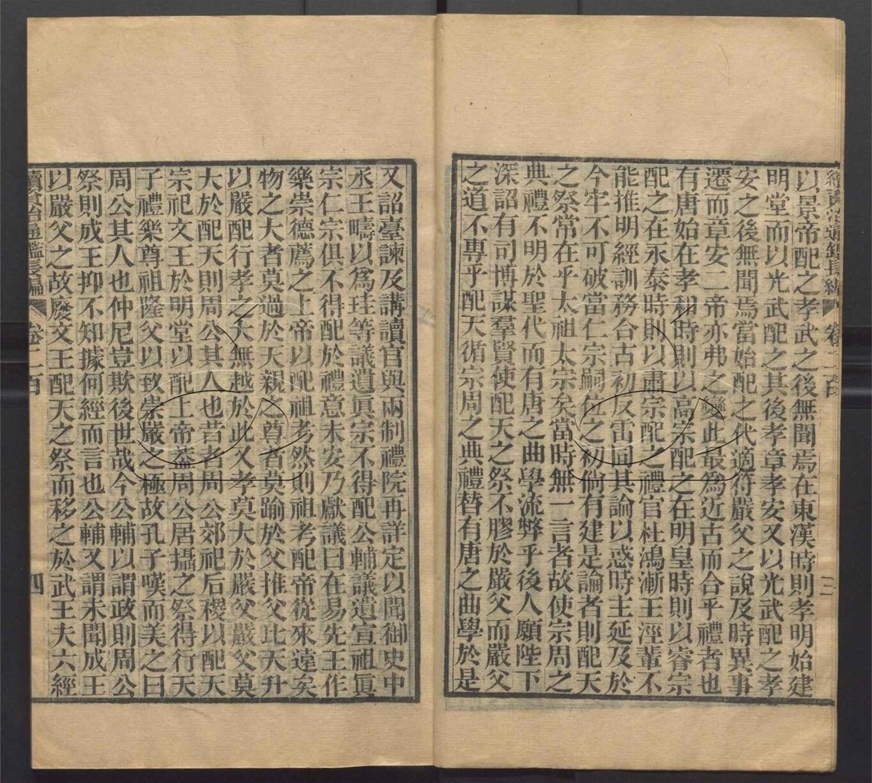 續資治通鑑長編 卷二百 三
以景帝配之孝武之後無聞焉在東漢時則孝明始建
明堂而以光武配之其後孝章孝安又以光武配之孝
安之後無聞焉當始配之代適符嚴父之說及時異事
遷而章安二帝亦弗之變此最為近古而合乎禮者也
有唐始在孝和時則以高宗配之在明皇時則以睿宗
配之在永泰時則以肅宗配之禮官杜鴻漸王涇輩不
能推明經訓務合古初反雷同其論以惑時主延及於
今牢不可破當仁宗嗣位之初倘有建是論者則配天
之祭常在乎太祖太宗矣當時無一言者故使宗周之
典禮不明於聖代而有唐之曲學流弊乎後人願陛下
深詔有司博謀羣賢使配天之祭不膠於嚴父而嚴父
之道不專乎配天循宗周之典禮替有唐之曲學於是
又詔臺諫及講讀官與兩制禮院再詳定以聞御史中
丞王疇以為珪等議遺眞宗不得配公輔議遺宣祖眞
宗仁宗俱不得配於禮意未安乃獻議曰在易先王作
樂崇德薦之上帝以配祖考然則祖考配帝從來遠矣
物之大者莫過於天親之尊者莫踰於父推父比天升
以嚴配行孝之大無越於此又孝莫大於嚴父嚴父莫
大於配天則周公其人也昔者周公郊祀后稷以配天
宗祀文王於明堂以配上帝葢周公居攝之祭得行天
子禮樂尊祖隆父以致崇嚴之極故孔子嘆而美之曰
周公其人也仲尼豈欺後世哉今公輔以謂政則周公
祭則成王抑不知據何經而言也公輔又謂未聞成王
以嚴父之故廢文王配天之祭而移之於武王夫六經
續資治通鑑長編 卷二百 四